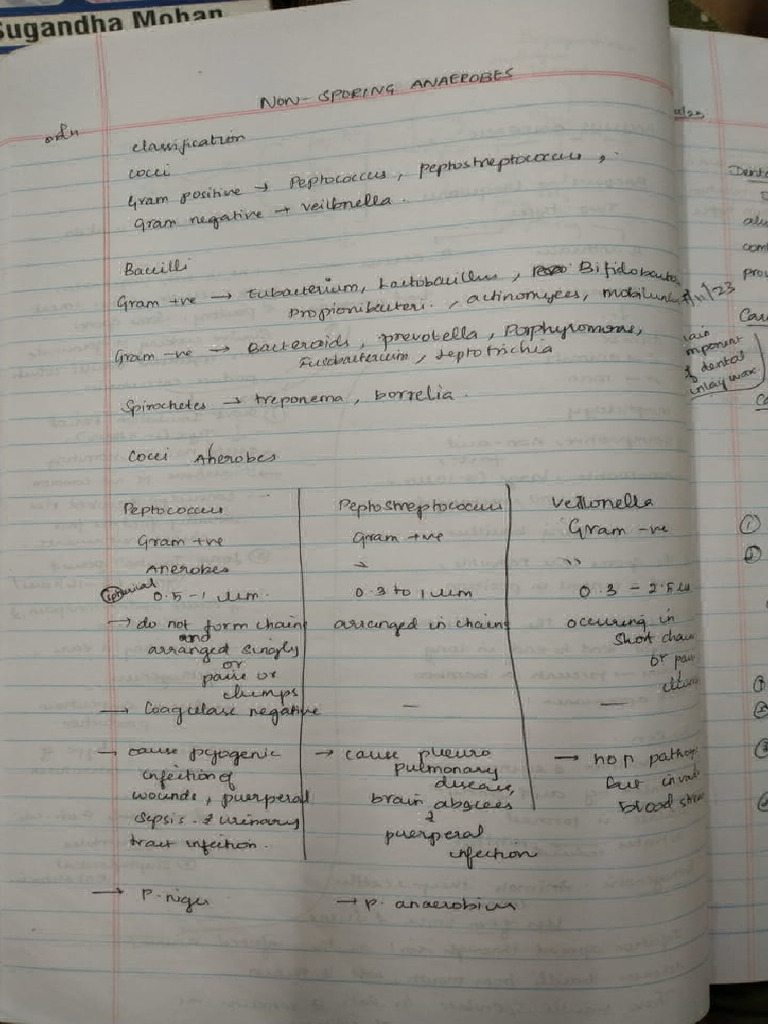 Sugandha Mohan
NON-SPORING ANAEROBES
classification
cocci
Gram positive → Peptococcus, peptostreptococcus,
Gram negative → veillonella.
Bacilli
Gram +ve → Eubacterium, Lactobacillus, Bifidobacte
Propionibacteri., actinomyces, mobilunc
Gram -ve → Bacteroids, prevotella, Porphyromonas,
Fusobacterium, Leptotrichia
Spirochetes → treponema, borrelia.
Cocci Anerobes
Peptococcus
Gram +ve
Anerobes
spherical 0.5-1 um.
→ do not form chain
and
arranged singly
or
pairs or
clumps
→ Coagulase negative
→ cause pyogenic
infection of
wounds, puerperal
sepsis. & urinary
tract infection.
→ P. niger
Peptostreptococcus
Gram +ve
0.3 to 1 um
arranged in chain
—
→ cause pleuro
pulmonary
disease,
brain abscess
&
puerperal
infection
→ P. anaerobius
Veillonella
Gram -ve
"
0.3 - 2.5 u
occuring in
short chai
or pai
—
→ non pathog
but invad
blood stre
11/23
Denta
com
pro
mponent
of dental
inlay wax.
①